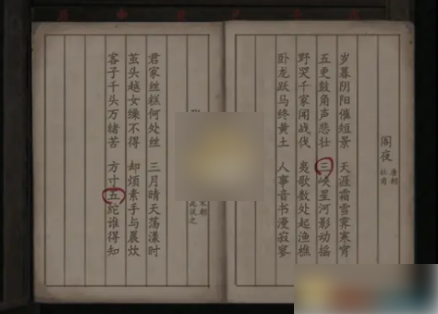 阁夜
唐朝
杜甫
岁暮阴阳催短景 天涯霜雪霁寒宵
五更鼓角声悲壮 三峡星河影动摇
野哭千家闻战伐 夷歌数处起渔樵
卧龙跃马终黄土 人事音书漫寂寥
宋朝
说之
君家丝糕何处丝 三月晴天荡漾时
茧头越女缫不得 却烦素手与晨炊
客子千头万绪苦 方寸五紽谁得知